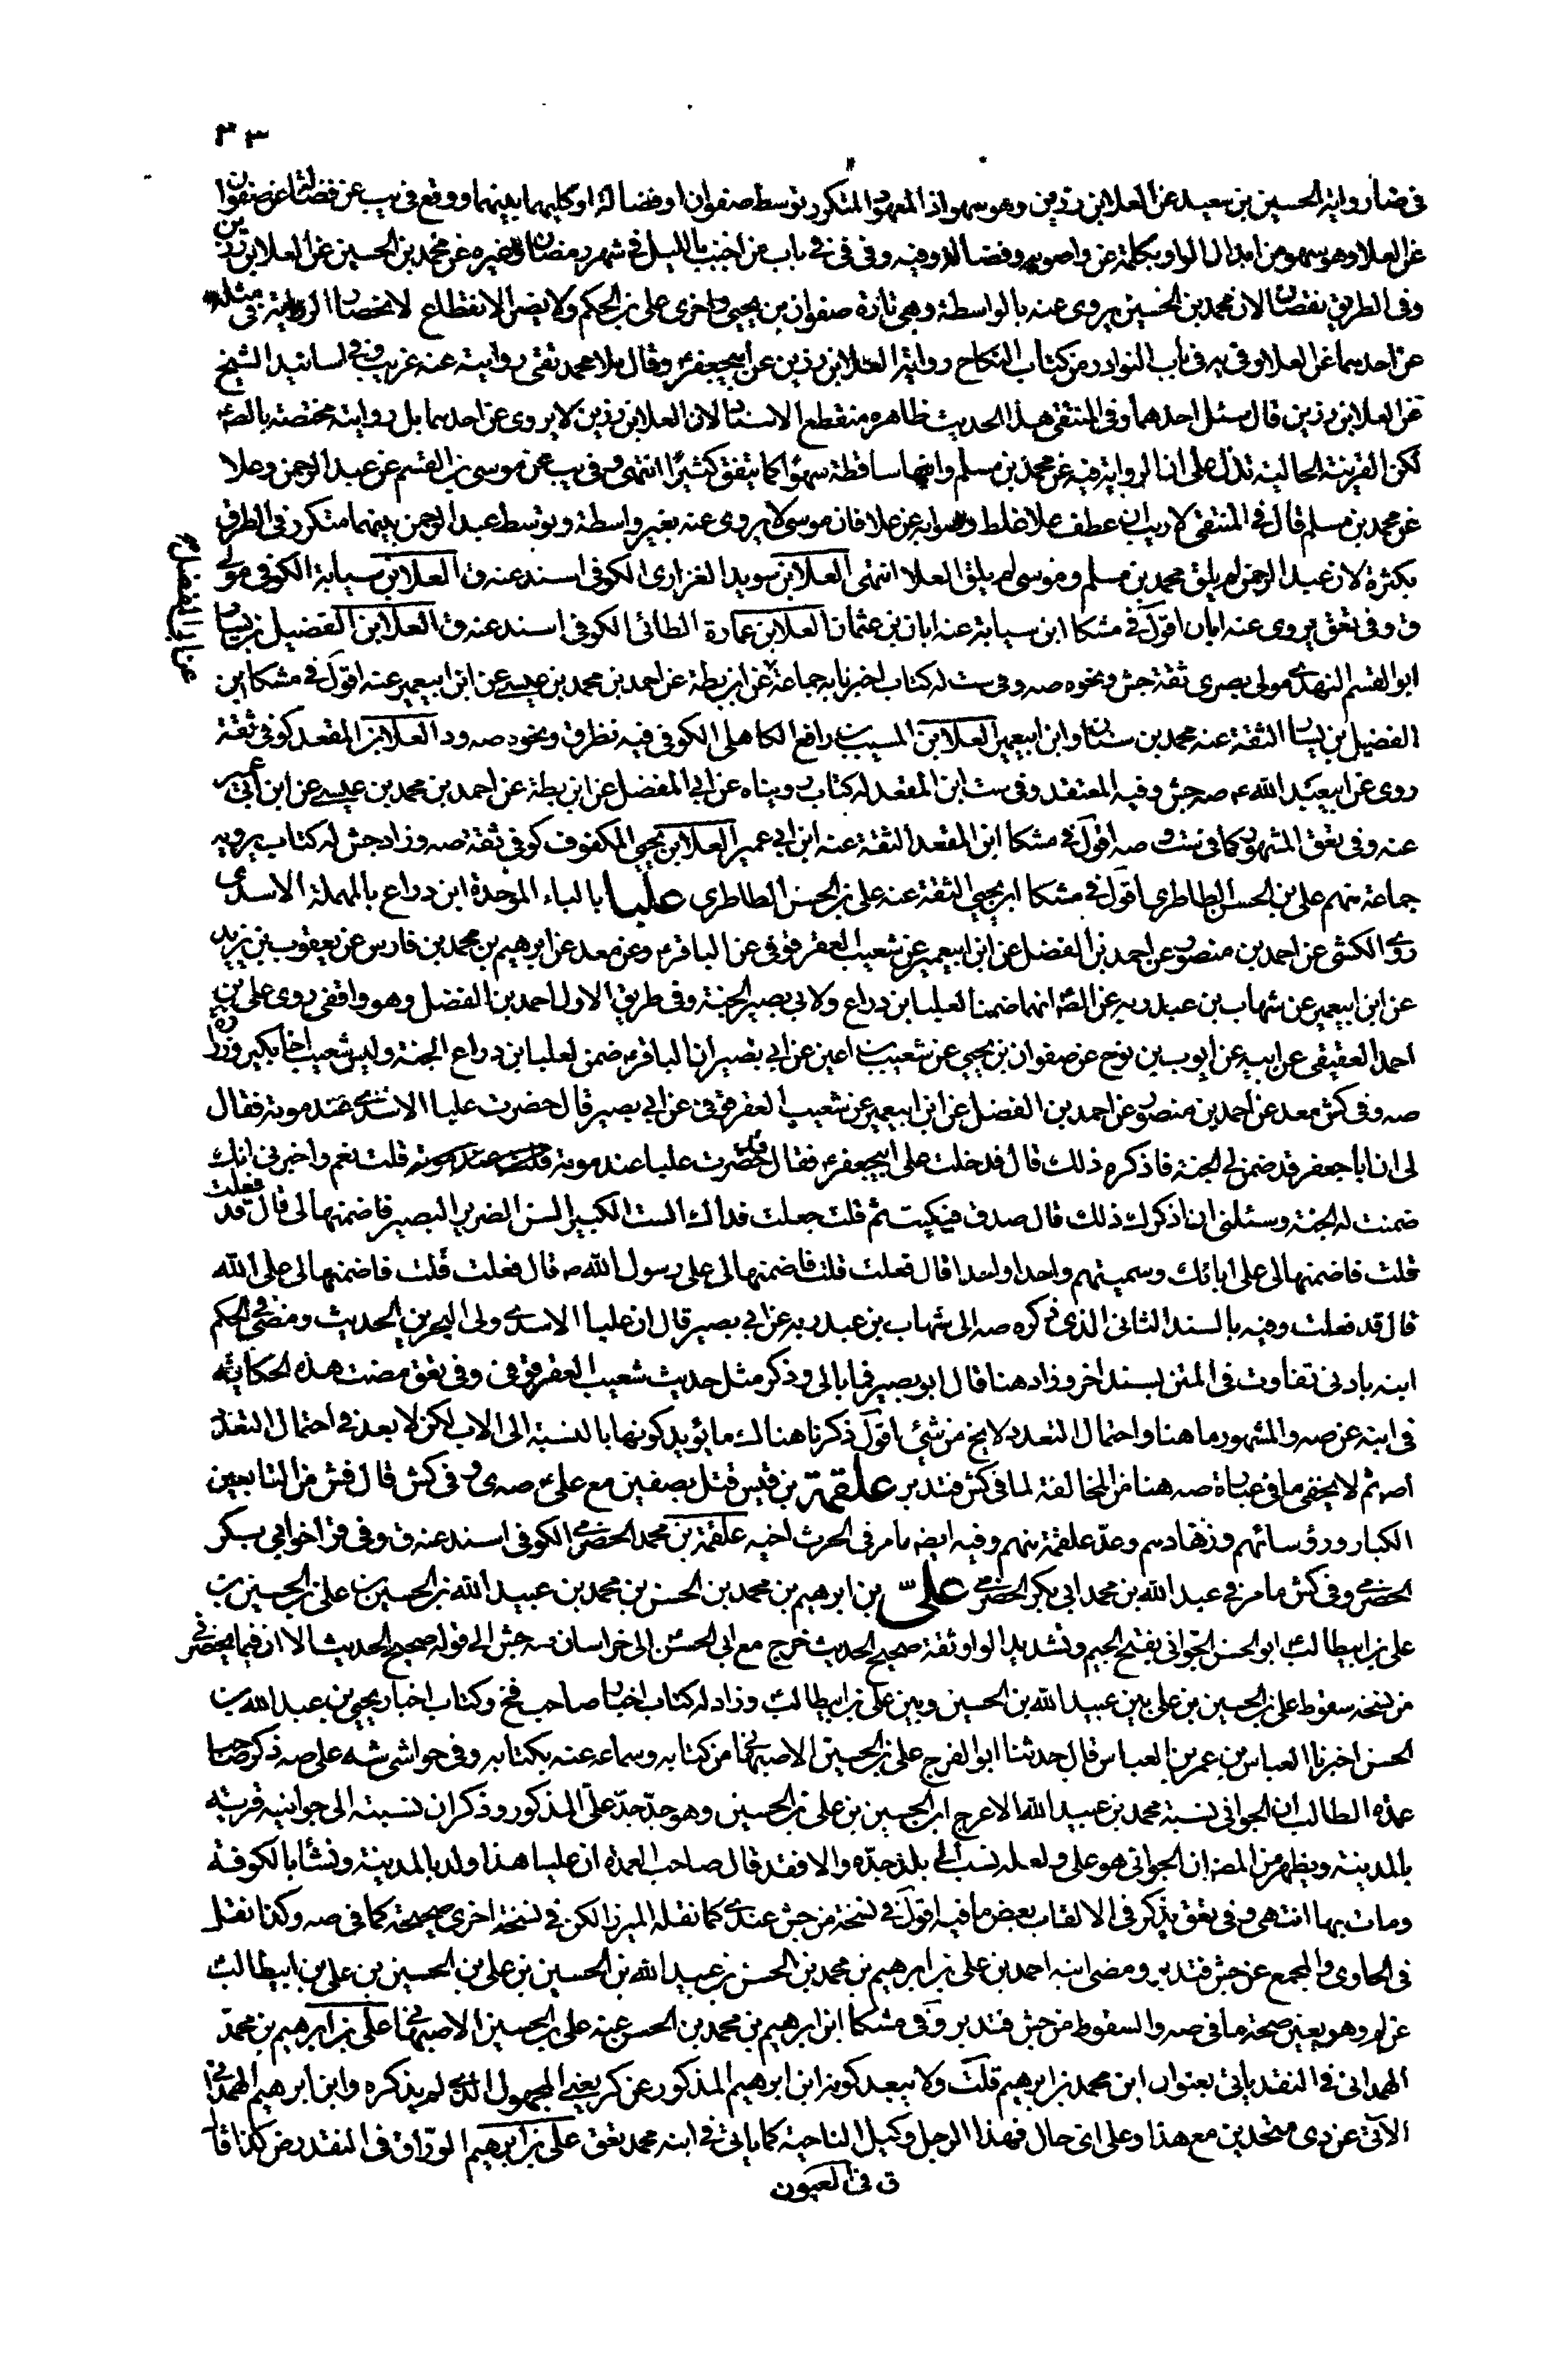 ٣٣
في ضا رواية الحسين بن سعيد عن العلا بن رزين وهو سهو اذ المعهود المتكرر توسط صفوان او فضالة او كليهما بينهما ووقع في يب عن فضالة عن صفوان
عن العلا وهو سهو من ابدال الواو بكلمة عن واصوبه وفضالة وفيه وفي في في باب من اجنب بالليل في شهر رمضان وغيره عن محمد بن الحسين عن العلا بن رزين
وفي الطريق نقصان لان محمد بن الحسين يروى عنه بالواسطة وهي تارة صفوان بن يحيى واخرى على بن الحكم ولا يضر الانقطاع لانحصار الرواية في مثله
عن احدهما عن العلا وفي يه في باب النوادر من كتاب النكاح رواية العلا بن رزين عن ابيجعفرع وقال ملا محمد تقى روايته عنه غريب وفي اسانيد الشيخ
عن العلا بن رزين قال سئل احدهما وفي المنتقى هذا الحديث ظاهره منقطع الاسناد لان العلا بن رزين لا يروى عن احدهما بل روايته مختصة بالصع
لكن القرينة الحالية تدل على ان الرواية فيه عن محمد بن مسلم وانها ساقطة سهوا كما يتفق كثيرا انتهى وفي يب عن موسى بن القسم عن عبد الرحمن وعلا
عن محمد بن مسلم قال في المنتقى لا ريب ان عطف علا غلط وصوابه عن علا فان موسى لا يروى عنه بغير واسطة وتوسط عبد الرحمن بينهما متكرر في الطرق
بكثرة لان عبد الرحمن لم يلق محمد بن مسلم وموسى لم يلق العلا انتهى العلا بن سويد الفزارى الكوفى اسند عنه ق العلا بن سيابة الكوفى مولى
ق وفي تعق يروى عنه ابان اقول في مشكا ابن سيابة عنه ابان بن عثمان العلا بن عمارة الطائى الكوفى اسند عنه ق العلا بن الفضيل بن يسار
ابو القسم النهدى مولى بصرى ثقة جش ونحوه صه وفي ست له كتاب اخبرنا به جماعة عن ابن بطة عن احمد بن محمد بن عيسى عن ابن ابيعمير عنه اقول في مشكا ابن
الفضيل بن يسار الثقة عنه محمد بن سنان وابن ابيعمير العلا بن المسيب بن رافع الكاهلى الكوفى فيه نظر ق ونحوه صه ود العلا بن المقعد كوفى ثقة
روى عن ابيعبد الله ع صه جش وفيه المعتقد وفي ست ابن المقعد له كتاب رويناه عن ابى المفضل عن ابن بطة عن احمد بن محمد بن عيسى عن ابن ابى عمير
عنه وفي تعق المشهور كما في ست و صه اقول في مشكا ابن المقعد الثقة عنه ابن ابى عمير العلا بن يحيى المكفوف كوفى ثقة صه وزاد جش له كتاب يرويه
جماعة منهم على بن الحسن الطاطرى اقول في مشكا ابن يحيى الثقة عنه على بن الحسن الطاطرى علبا بالباء الموحدة ابن دراع بالمهملة الاسدى
روى الكشى عن احمد بن منصور عن احمد بن الفضل عن ابن ابيعمير عن شعيب العقرقوفى عن الباقرع وعن معد عن ابرهيم بن محمد بن فارس عن يعقوب بن يزيد
عن ابن ابيعمير عن شهاب بن عبد ربه عن الصع انهما ضمنا لعلبا بن دراع ولابى بصير الجنة وفي طريق الاول احمد بن الفضل وهو واقفى روى على بن
احمد العقيقى عن ابيه عن ايوب بن نوح عن صفوان بن يحيى عن شعيب بن اعين عن ابى بصير ان الباقرع ضمن لعلبا بن دراع الجنة وليس شعيب اخا بكير وزراره
صه وفي كش معد عن احمد بن منصور عن احمد بن الفضل عن ابن ابيعمير عن شعيب العقرقوفى عن ابى بصير قال حضرت علبا الاسدى عند موته فقال
لى ان ابا جعفر قد ضمن لى الجنة فاذكره ذلك قال فدخلت على ابيجعفرع فقال حضرت علبا عند موته قلت نعم واخبرنى انك
ضمنت له الجنة وسئلنى ان اذكرك ذلك قال صدق فبكيت ثم قلت جعلت فداك الست الكبير السن الضرير البصير فاضمنها لى قال قد فعلت
قلت فاضمنها لى على ابائك وسميتهم واحدا واحدا قال فعلت قلت فاضمنها لى على رسول الله ص قال فعلت قلت فاضمنها لى على الله
قال قد فعلت وفيه بالسند الثانى الذى ذكره صه الى شهاب بن عبد ربه عن ابى بصير قال ان علبا الاسدى ولى البحرين الحديث ومضى في الحكم
ابنه بادنى تفاوت في المتن بسند اخر وزاد هنا قال ابو بصير فما بالى وذكر مثل حديث شعيب العقرقوفى وفي تعق مضت هذه الحكاية
في ابنه عن صه والمشهور ما هنا واحتمال التعدد لا يخ من شئ اقول ذكرنا هناك ما يؤيد كونها بالنسبة الى الاب لكن لا بعد في احتمال التعدد
اصه ثم لا يخفى ما في عبارة صه هنا من المخالفة لما في كش فتدبر علقمة بن قيس قتل بصفين مع علىع صه ى و في كش قال فش من التابعين
الكبار ورؤسائهم وزهادهم وعد علقمة منهم وفيه ايضه ما مر في الحرث اخيه علقمة بن محمد الحضرمى الكوفى اسند عنه ق وفي قر اخو ابى بكر
الحضرمى وفي كش ما مر في عبد الله بن محمد ابى بكر الحضرمى علىّ بن ابرهيم بن محمد بن الحسن بن محمد بن عبيد الله بن الحسين بن على بن الحسين بن
على بن ابيطالبع ابو الحسن الجوانى بفتح الجيم وتشديد الواو ثقة صحيح الحديث خرج مع ابى الحسنع الى خراسان صه جش الى قوله صحيح الحديث الا ان فيما يحضرنى
من نسخه سقوط على بن الحسين بن على بين عبيد الله بن الحسين وبين على بن ابيطالبع وزاد له كتاب اخبار صاحب فخ وكتاب اخبار يحيى بن عبد الله بن
الحسن اخبرنا العباس بن عمر بن العباس قال حدثنا ابو الفرج على بن الحسين الاصبهانى من كتابه وسماعه عنه بكتابه وفي حواشى شه على صه ذكر صاحب
عمدة الطالب ان الجوانى نسبة محمد بن عبيد الله الاعرج ابن الحسين بن على بن الحسين وهو جدّ جدّ علىّ المذكور وذكر ان نسبته الى جوانيه قرية
بالمدينة ويظهر من المصه ان الجوانى هو على ولعله نسب الى بلد جدّه والا فقد قال صاحب العمدة ان عليا هذا ولد بالمدينة ونشأ بالكوفة
ومات بها انتهى وفي تعق يذكر في الالقاب بعض ما فيه اقول في نسخة من جش عندى كما نقله الميرزا لكن في نسخة اخرى صحيحة كما في صه وكذا نقل
في الحاوى والمجمع عن جش فتدبر ومضى ابنه احمد بن على بن ابرهيم بن محمد بن الحسن بن عبيد الله بن الحسين بن على بن الحسين بن على بن ابيطالبع
عن لم وهو يعين صحة ما في صه والسقوط من جش فتدبر وفي مشكا ابن ابرهيم بن محمد بن الحسن عنه على بن الحسين الاصبهانى على بن ابرهيم بن محمدّ
الهمدانى في النقد يأتى بعنوان ابن محمد بن ابرهيم قلت ولا يبعد كونه ابن ابرهيم المذكور عن كر يعنى المجهول الذى لم يذكره وابن ابرهيم الهمدانى
الآتى عن دى متحدين مع هذا وعلى اى حال فهذا الرجل وكيل الناحية كما يأتى في ابنه محمد تعق على بن ابرهيم الورّاق في النقد رض كذا قال
ق في العيون